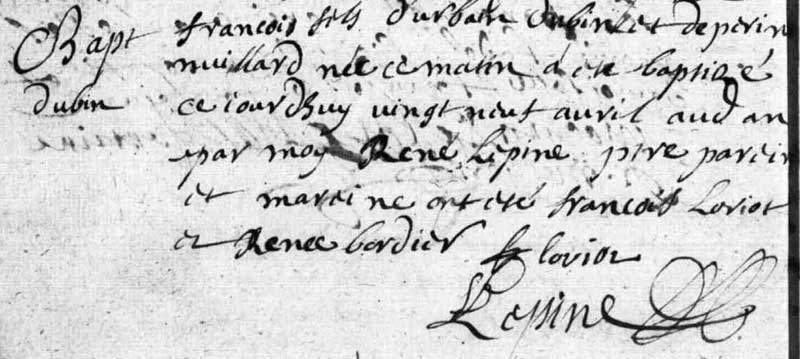 Bapt
dubin
françois fils d'urbain dubin et de perin
millard née ce matin a ete baptizé
ce iourdhuy vingt neuf avril aud an
par moy René Lepine ptre parein
et mareine ont eté françois Loriot
et Renee bordier f loriot
Lepine